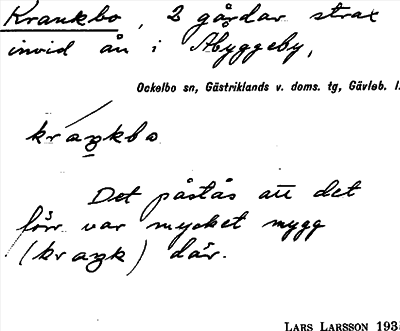 Krankbo, 2 gårdar strax
invid ån i Åbyggeby,
Ockelbo sn, Gästriklands v. doms. tg, Gävleb. l.
kraŋkbo
Det påstås att det
förr var mycket mygg
(kraŋk) där.
LARS LARSSON 193